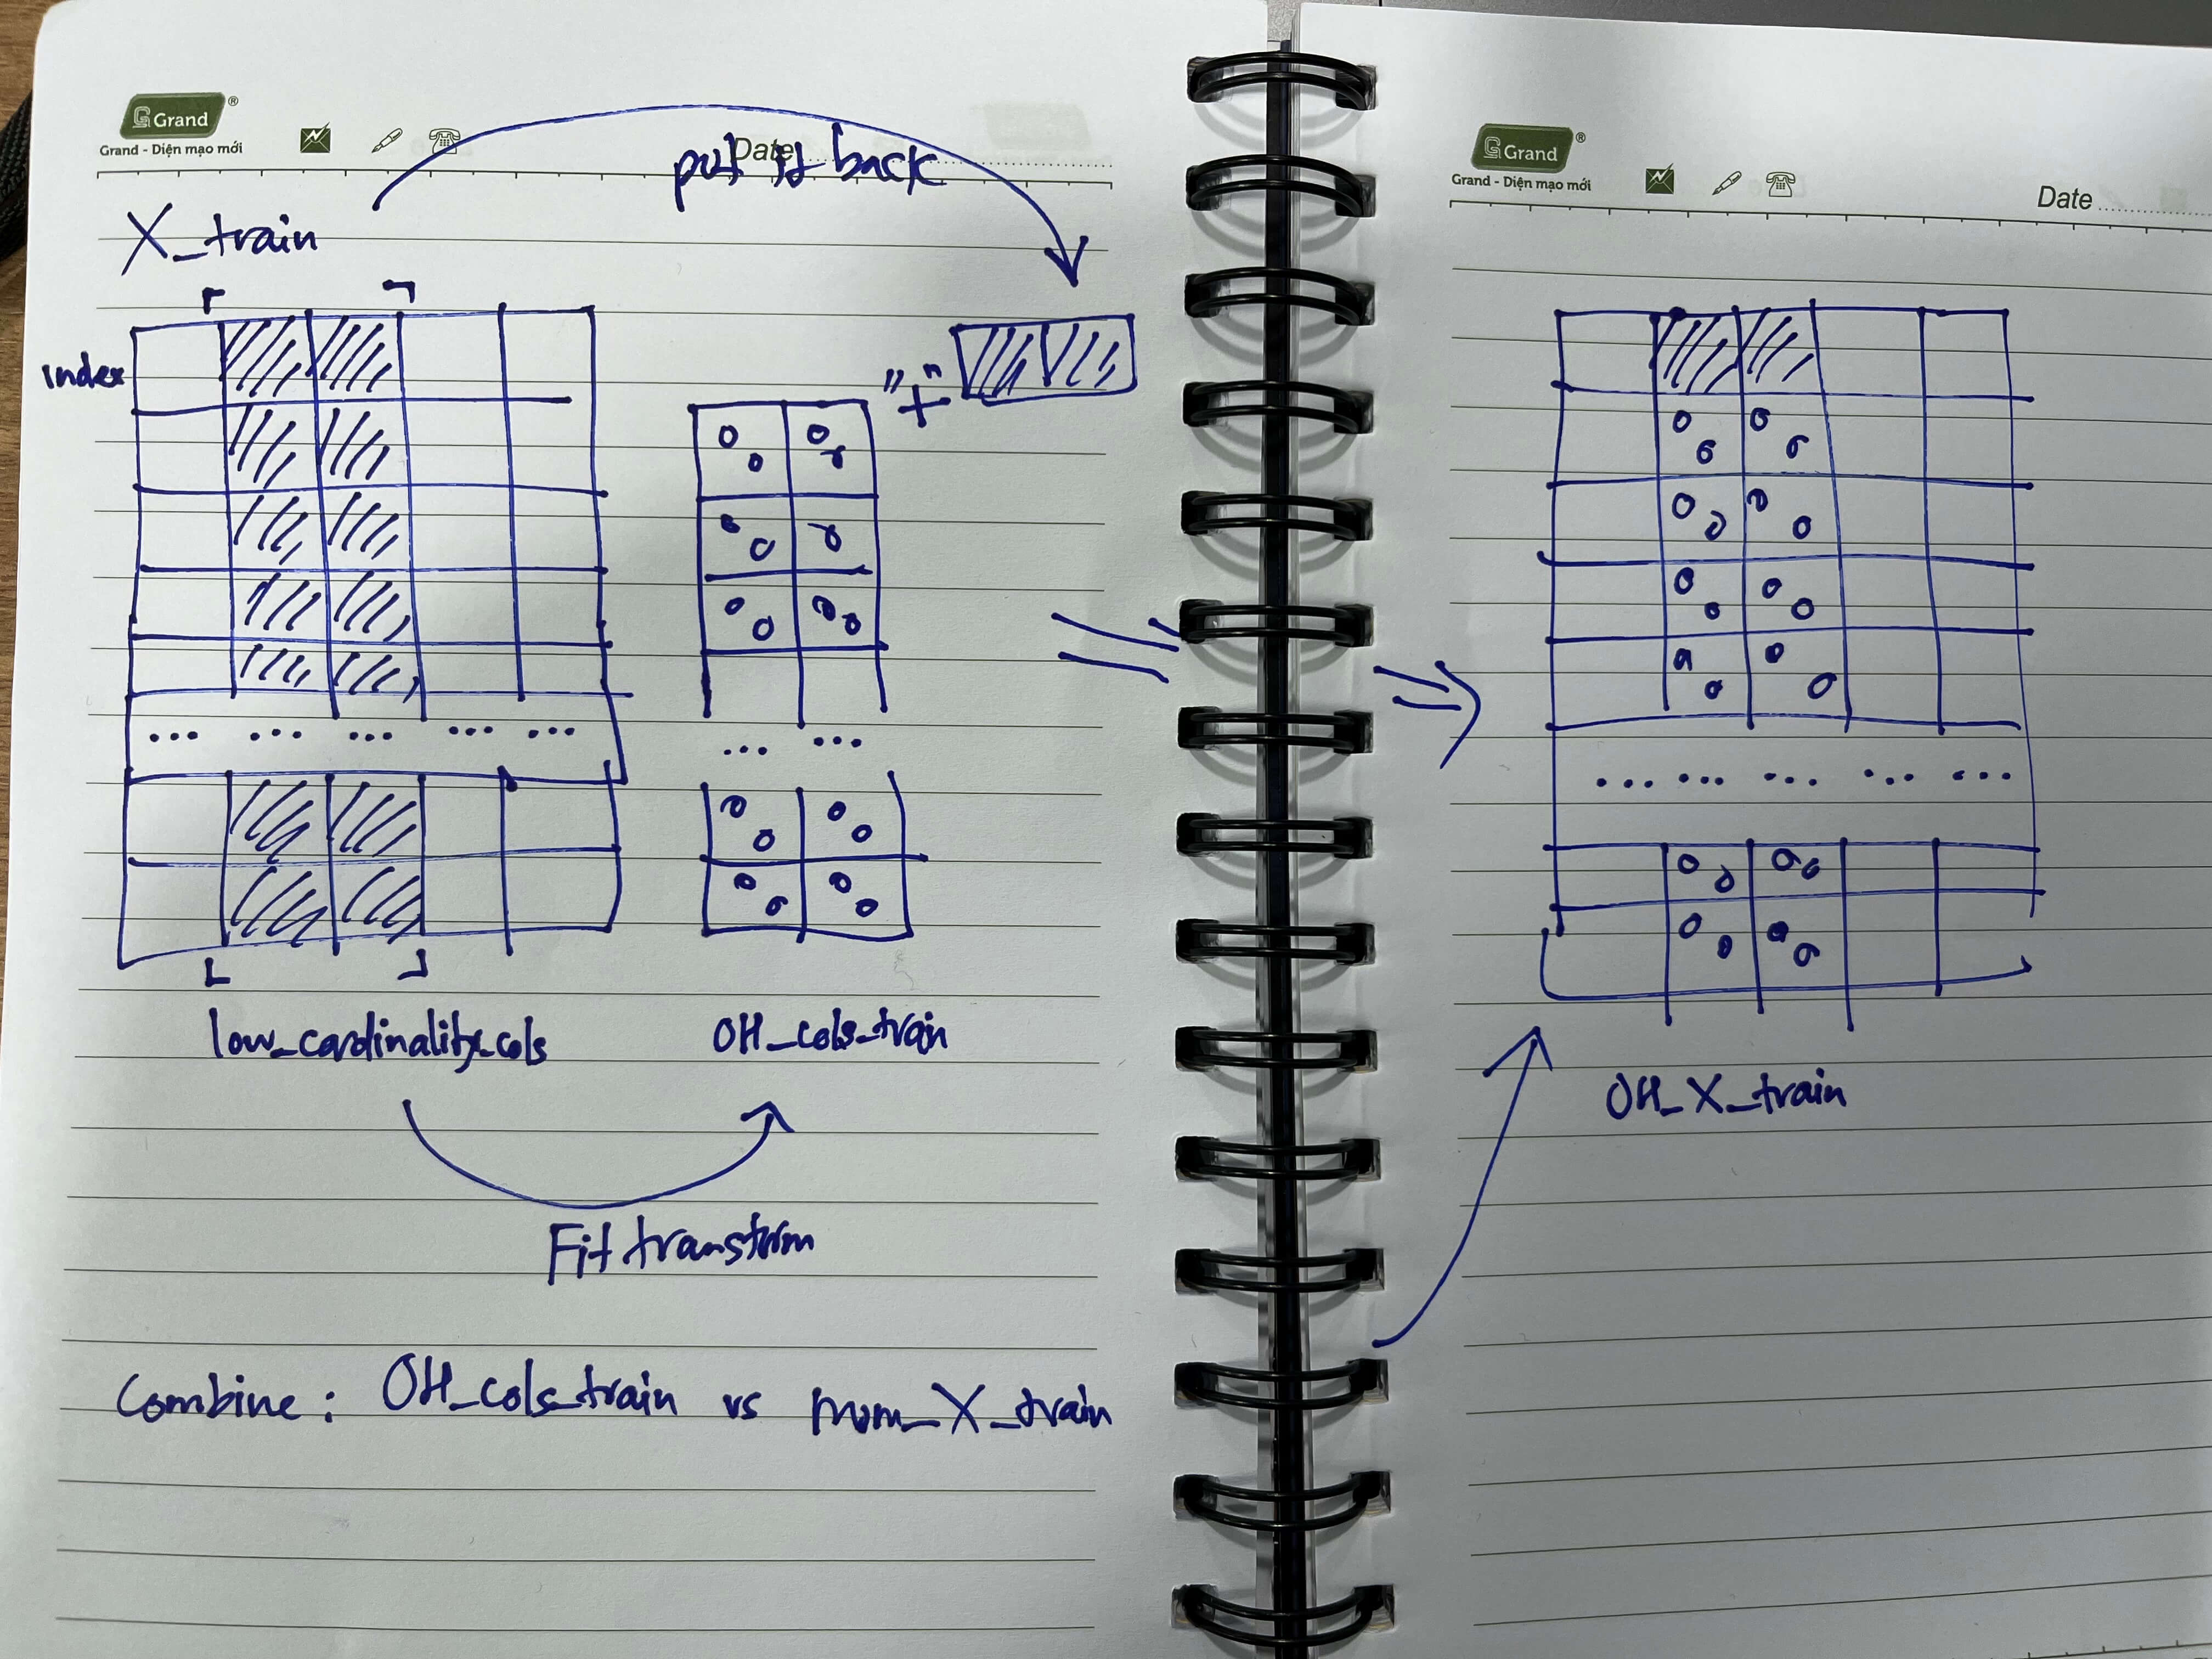 Grand®
Grand - Diện mạo mới
Date
put it back
X_train
index
"+"
... ... ... ... ...
... ...
low_cardinality_cols
OH_cols_train
Fit transform
Combine: OH_cols_train vs num_X_train
Grand®
Grand - Diện mạo mới
Date
... ... ... ... ...
OH_X_train